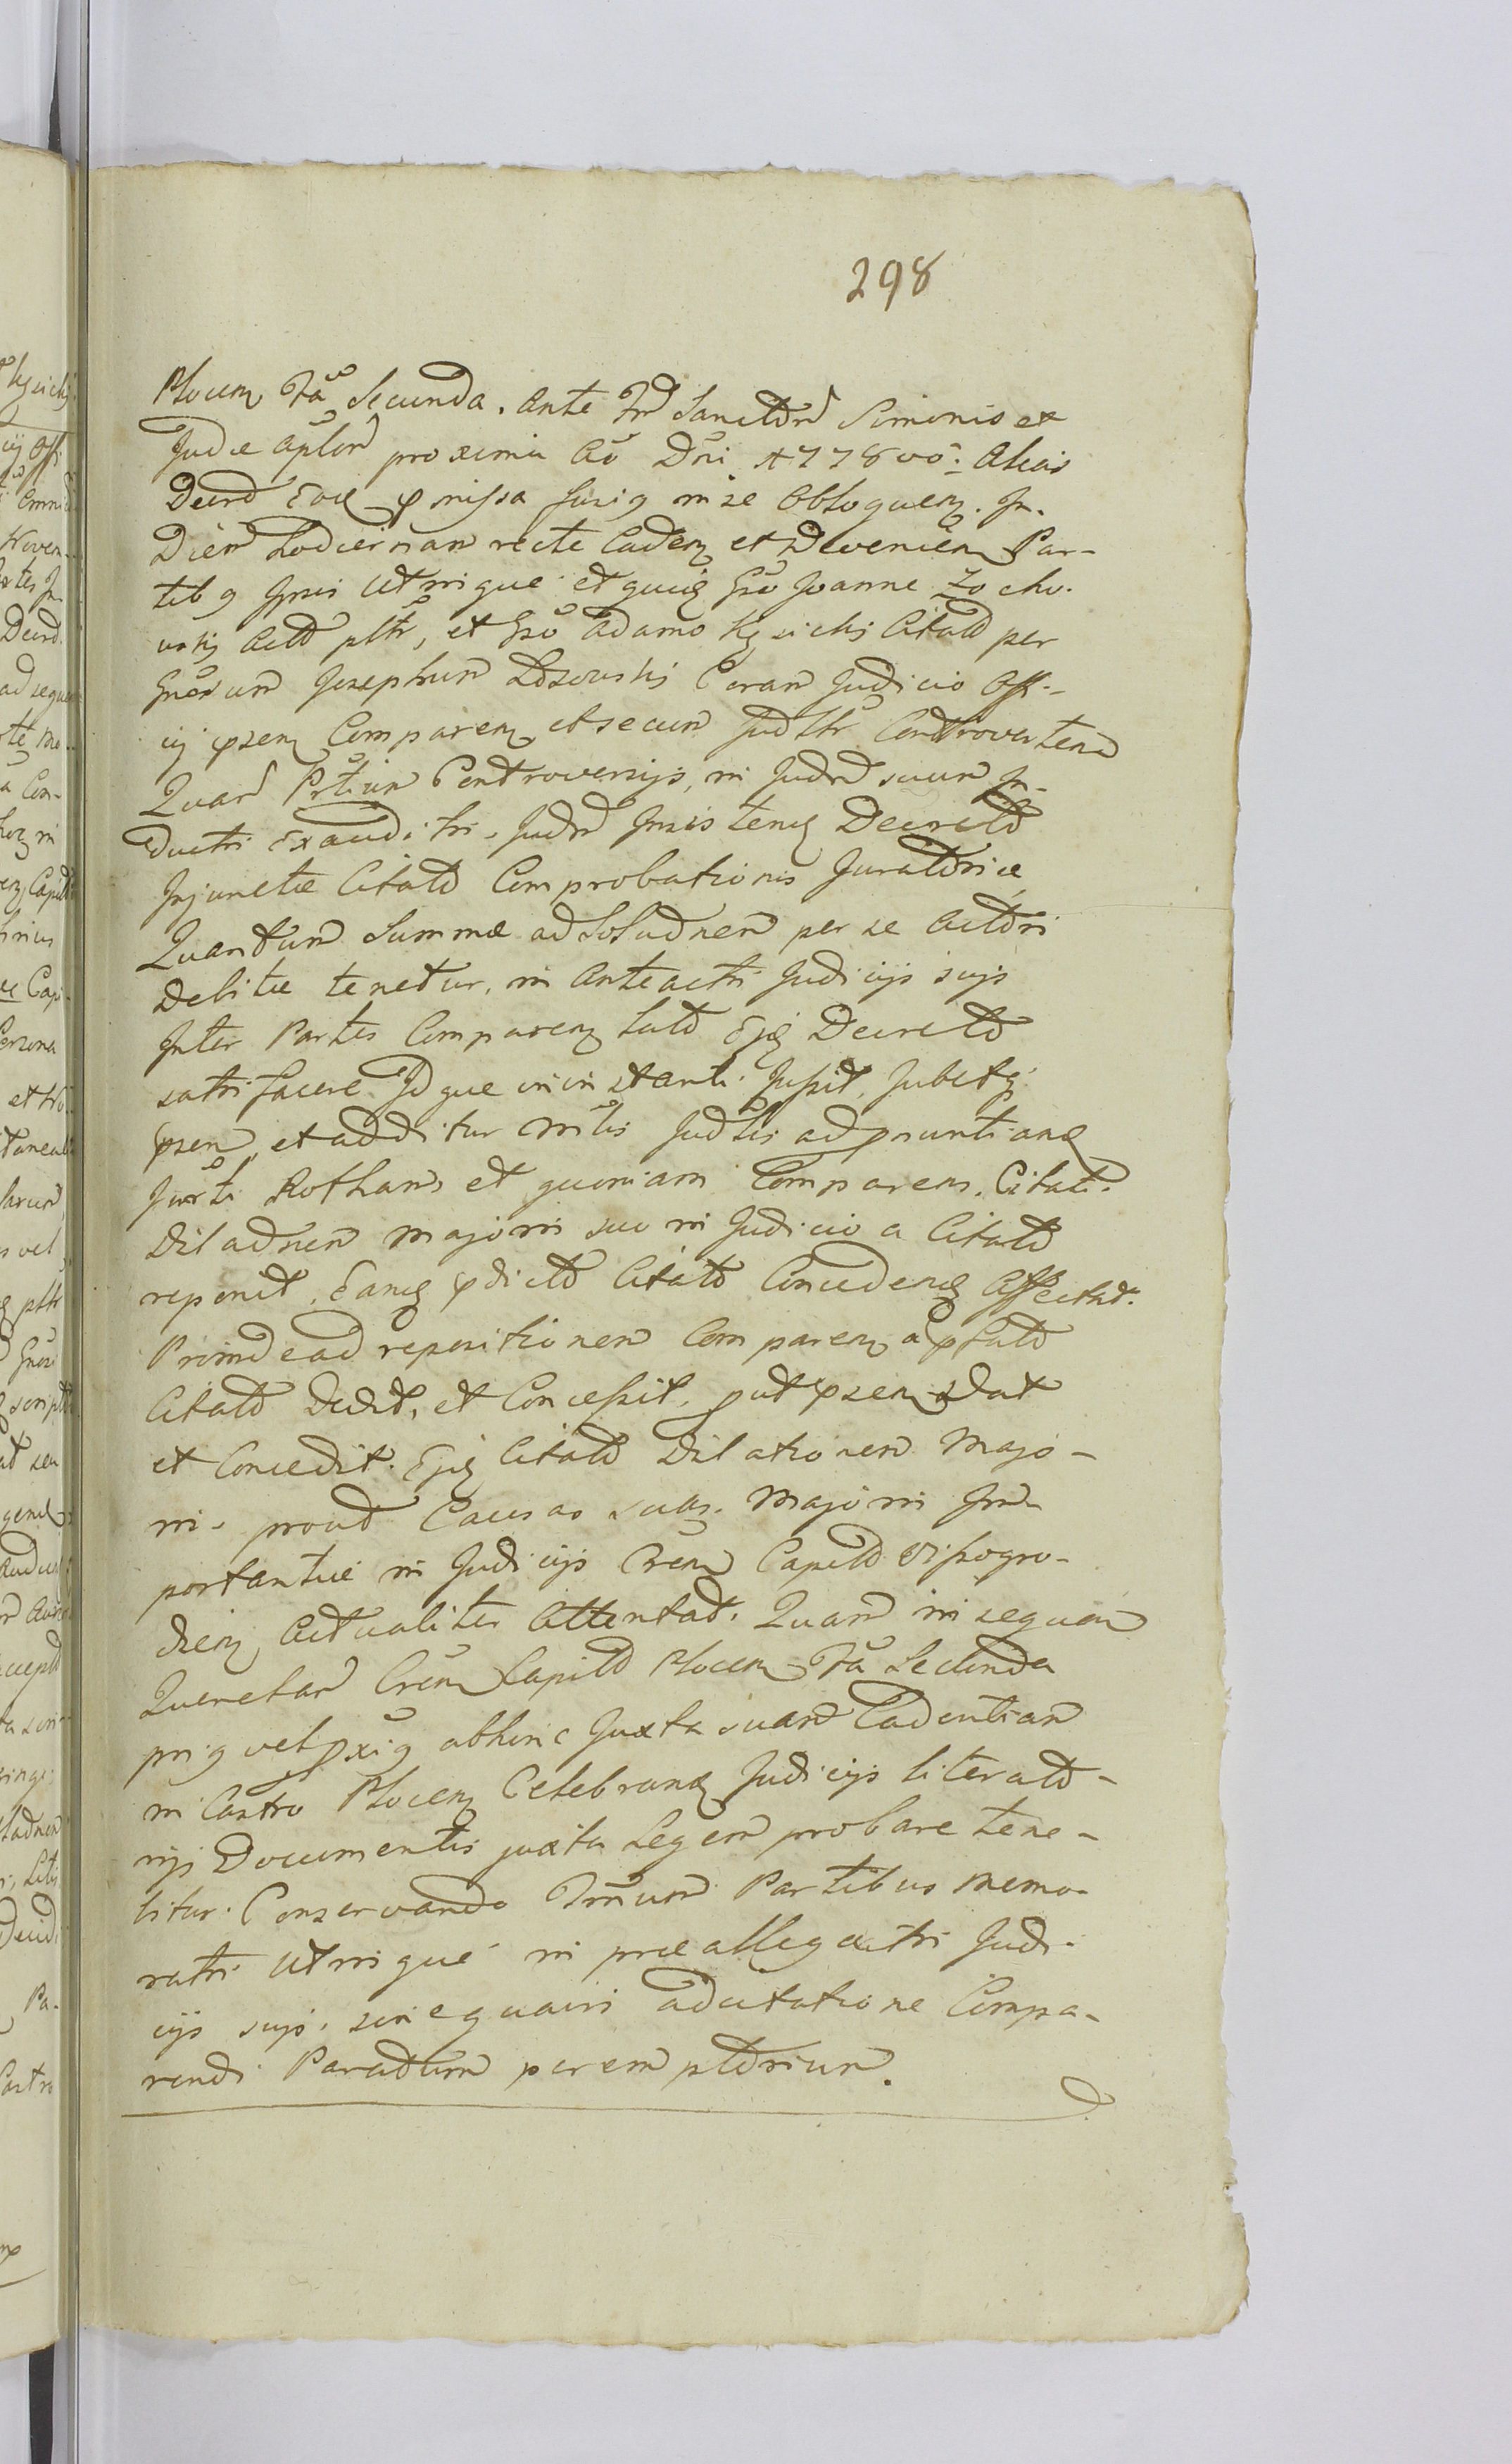 298
Plocen Fa Secunda. Ante Fm Sanctor Simonis et
Judæ Aplor proxima Ao Dni 1778vo: Alias
Decrd præmissa fusig in se Obloquen. In
Diem hodiernam recte Caden et Devenien Par-
tibg Ipsis Utrique et quidq Gso Joanne Zocho-
wskj Act pltr, et Gso Adamo Kęsickj Citato per
Gnosum Josephum Łozowskj Coram Judicio Offi-
cij præsen Comparen et secum Judltr Controverten
Quar Prtium Controversijs, in Judrd suum In-
ductis Exauditis. Judrd Insistendq Decreto
Injunctæ Citato Comprobationis Juratoriæ
Quantum Summæ ad Soludnem per se Actori
Debitæ tenetur, in Anteactis Judicijs sujs
Inter Partes Comparen lato Ejq Decreto
satisfacere Idque in instanti Jussit, Jubetq
præsen, et additur Mtis Judlis ad pnuntiandq
Jurti Rotham, et quoniam Comparens. Citat.
Diladnem Majoris suo in Judicio a Citato
reponit, Eamq prædicto Citato Concedendq Affectat.
Proinde ad repositionem Comparen a præfato
Citato Dedit, et Concessit, put præsen Dat
et Concedit. Ejq Citato Dilationem Majo-
ris prout Causas suas Majoris Im-
portantiæ in Judicijs Cren Capit Vissogro-
dien Actualiter Attentat. Quam in sequen
Querelar Cren Capit Plocen Fa Secunda
prig vel pxig abhinc Juxta suam Cadentiam
in Castro Plocen Celebrandq Judicijs literato-
rijs Documentis juxta Legem probare tene-
bitur. Conservando Trnum Partibus memo-
ratis Utrique in præallegatis Judi-
cijs sujs. sine quavis adcitatione Compa-
rendi Paratum peremptorium.